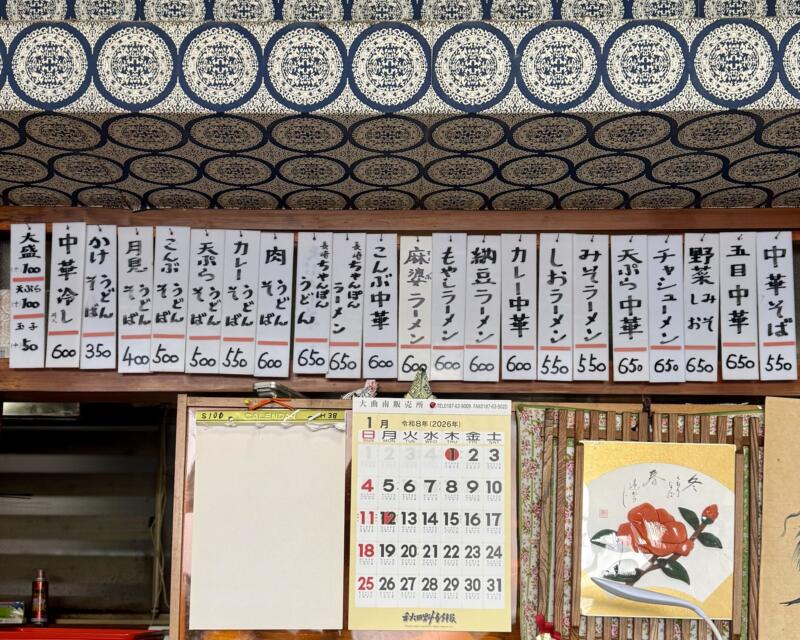 中華そば 550
五目中華 650
野菜 しお みそ 650
チャシューメン 650
天ぷら中華 650
みそラーメン 550
しおラーメン 550
カレー中華 600
納豆ラーメン 600
もやしラーメン 600
麻婆ラーメン 600
こんぶ中華 600
長崎ちゃんぽんラーメン 650
長崎ちゃんぽんうどん 650
肉 うどん そば 600
カレー うどん そば 550
天ぷら うどん そば 500
こんぶ うどん そば 500
月見 うどん そば 400
かけ うどん そば 350
中華冷し 600
大盛 100
天ぷら 100
玉子 50
S100 CALENDAR H38
大曲南販売所 TEL0187-63-9009 FAX0187-63-5025
1月 令和8年(2026年)
日 月 火 水 木 金 土
1 2 3 4 1 2 3
4 5 6 7 8 9 10
11 12 13 14 15 16 17
18 19 20 21 22 23 24
25 26 27 28 29 30 31
秋田魁新報
冬
春